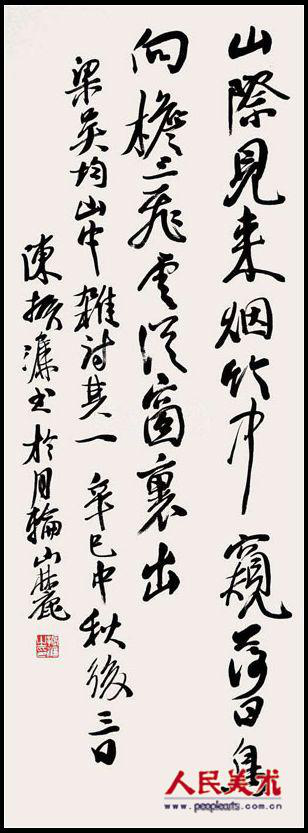 山際見來烟竹中窺落日鳥
向檐上飛雲從窗裏出
梁吳均山中雜詩其一 辛巳中秋後三日
陳振濂書於月輪山麓
人民美术
www.peoplearts.com.cn